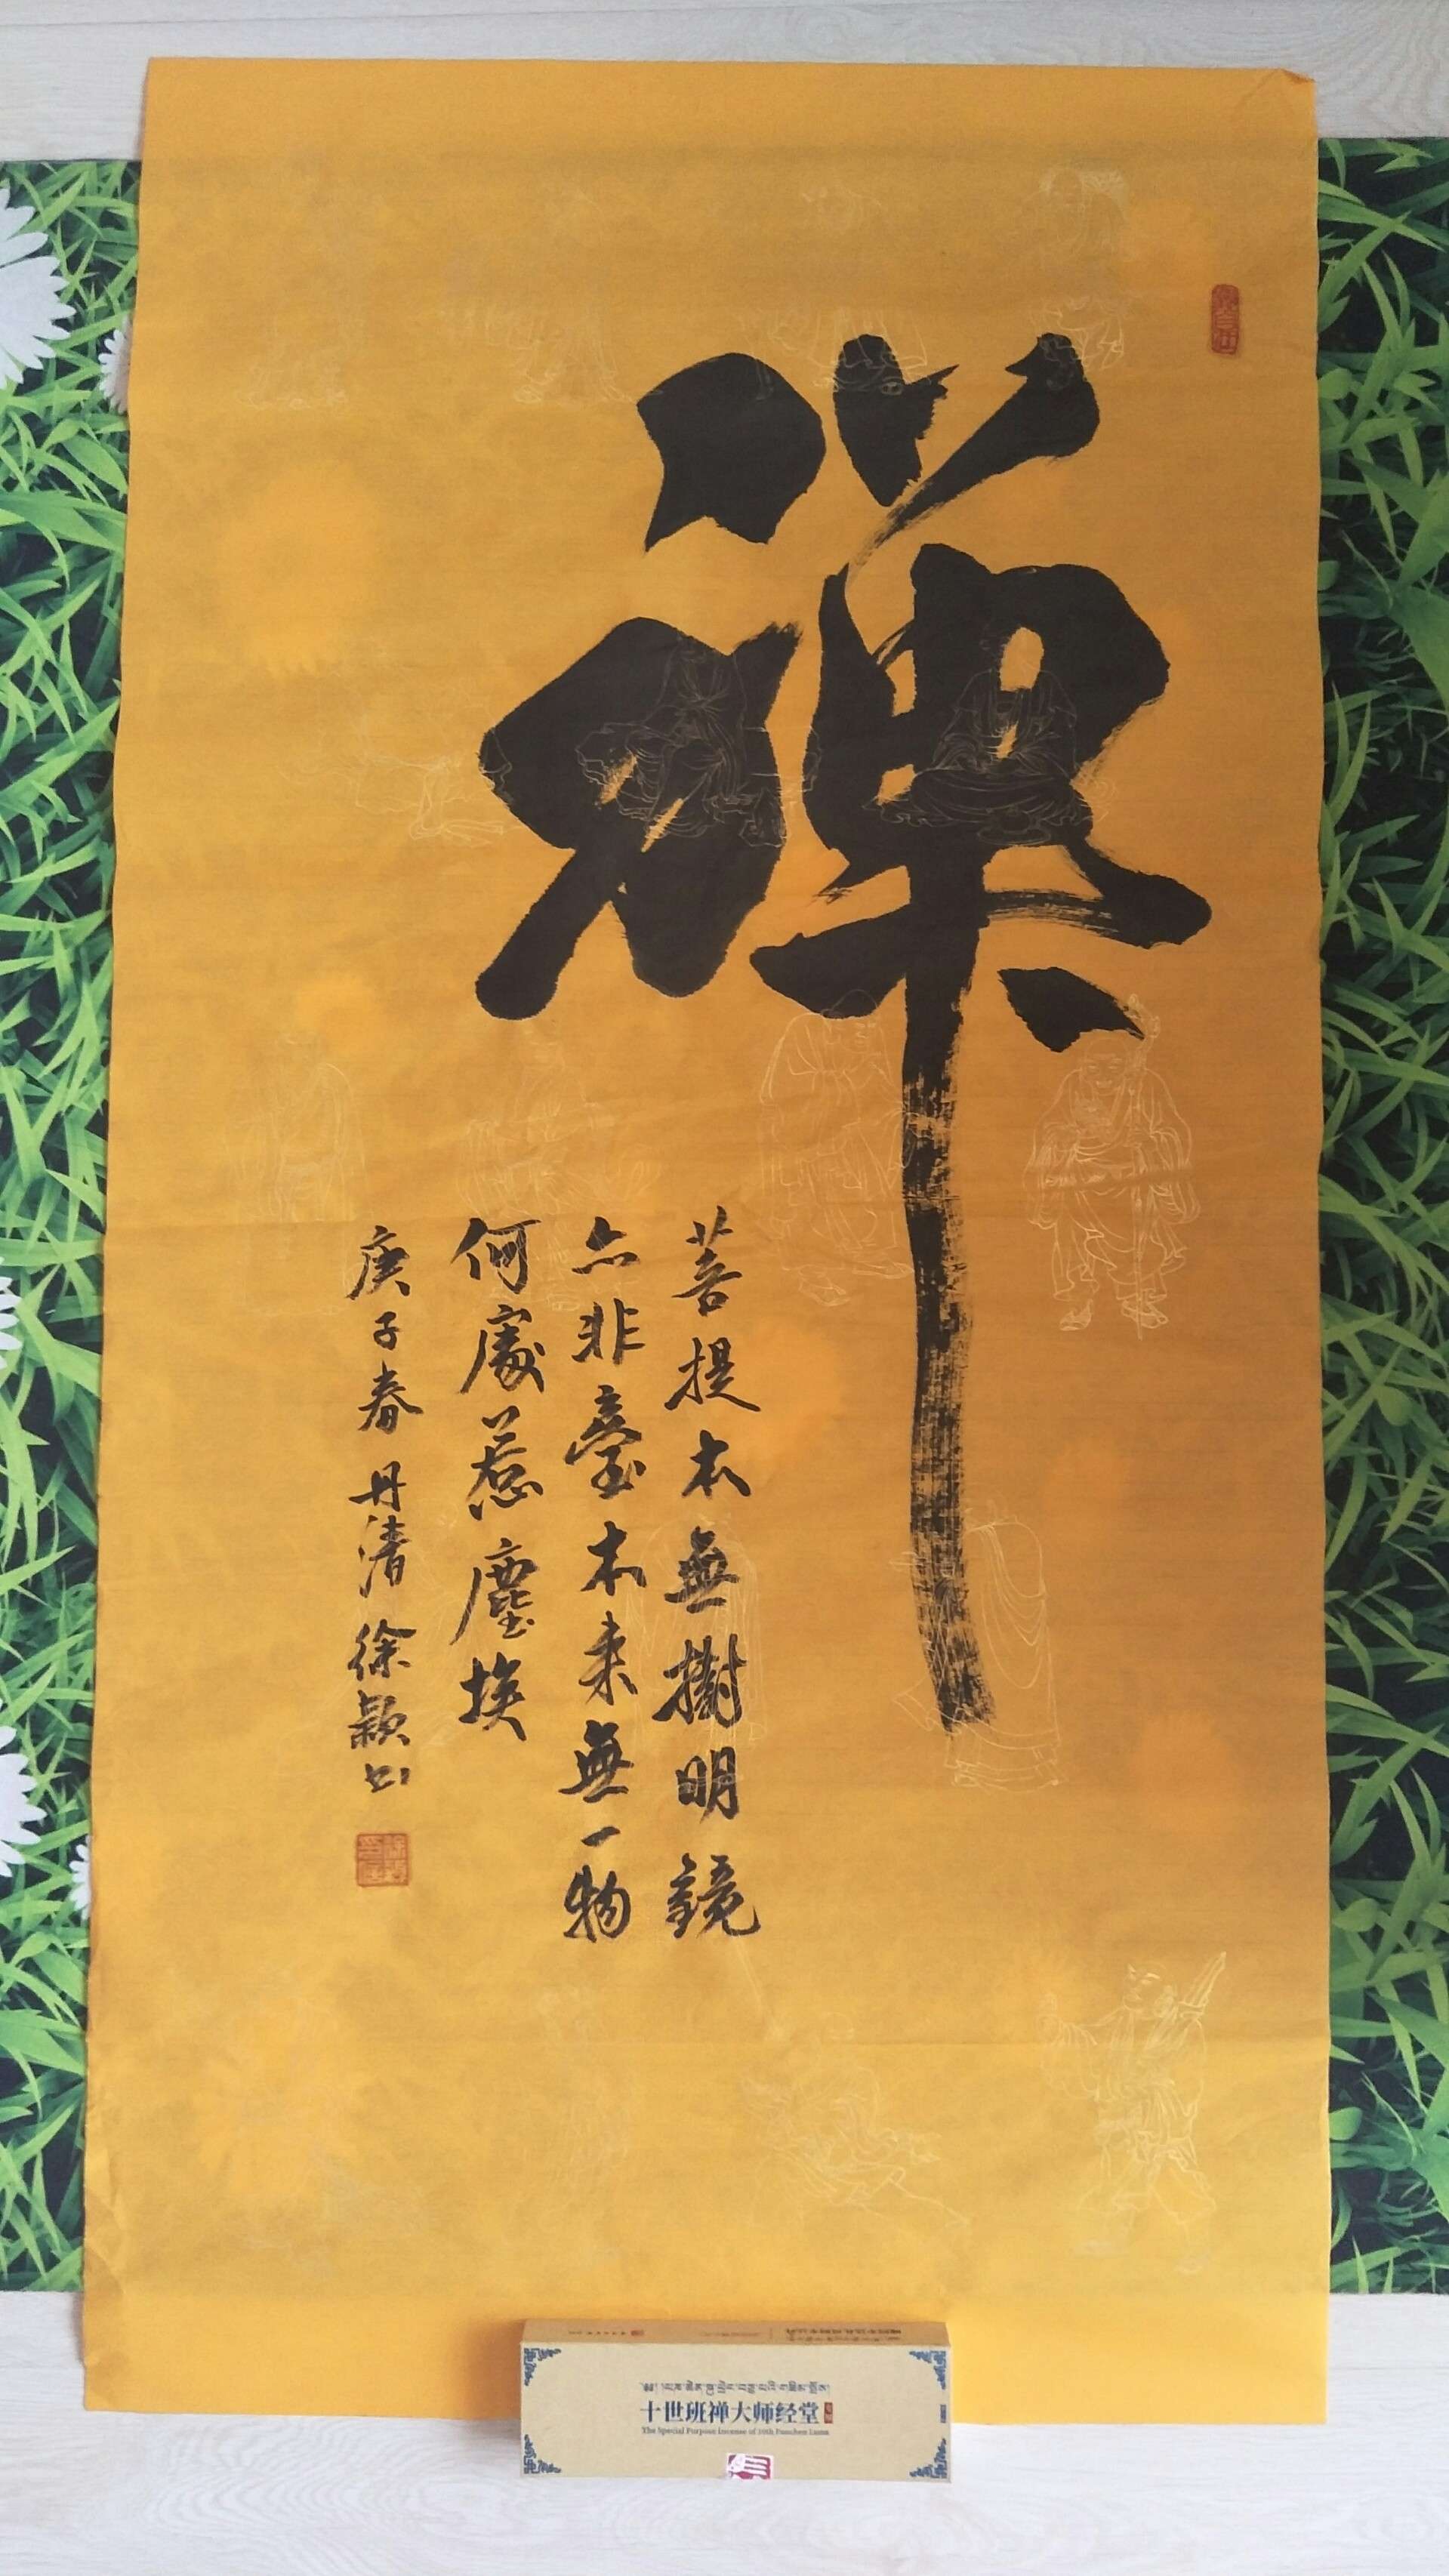 禪
菩提本無樹明鏡
亦非臺本来無一物
何處惹塵埃
庚子春 丹清 徐颖书
十世班禅大师经堂
The Special Purpose Incense of 10th Panchen Lama